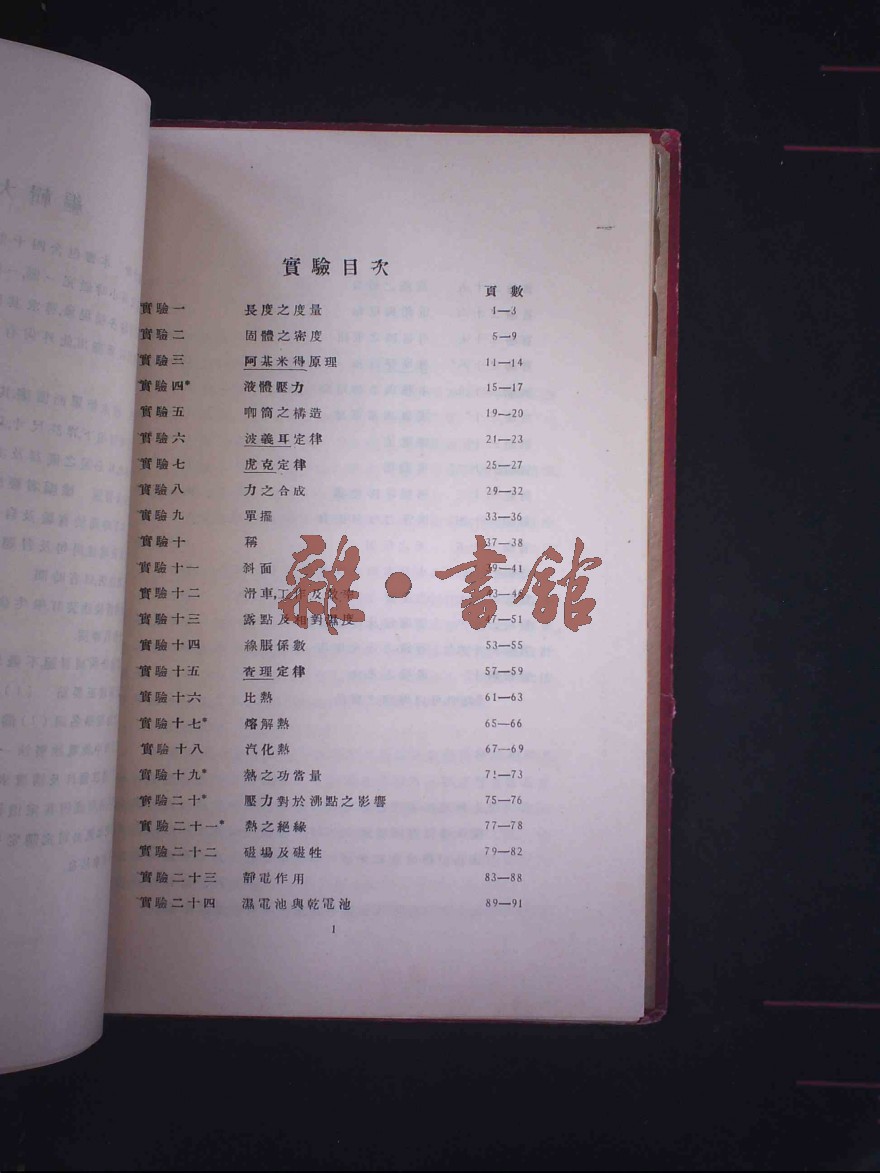 實驗目次
頁數
實驗一 長度之度量 1—3
實驗二 固體之密度 5—9
實驗三 阿基米得原理 11—14
實驗四* 液體壓力 15—17
實驗五 唧筒之構造 19—20
實驗六 波義耳定律 21—23
實驗七 虎克定律 25—27
實驗八 力之合成 29—32
實驗九 單擺 33—36
實驗十 稱 37—38
實驗十一 斜面 —41
實驗十二 滑車,工作及效率
實驗十三 露點及相對濕度 —51
實驗十四 線脹係數 53—55
實驗十五 查理定律 57—59
實驗十六 比熱 61—63
實驗十七* 熔解熱 65—66
實驗十八 汽化熱 67—69
實驗十九* 熱之功當量 71—73
實驗二十* 壓力對於沸點之影響 75—76
實驗二十一* 熱之絕緣 77—78
實驗二十二 磁場及磁性 79—82
實驗二十三 靜電作用 83—88
實驗二十四 濕電池與乾電池 89—91
1
雜·書館